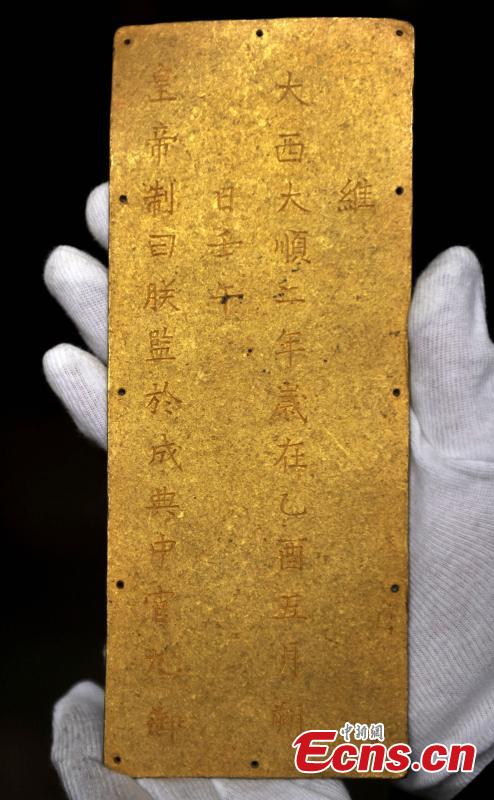 維
大西大順二年歲在乙酉五月朔
日壬午
皇帝制曰朕監於成典中宮九御
中新網
Ecns.cn